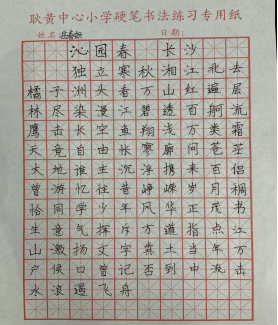 耿黄中心小学硬笔书法练习专用纸
姓名 日期:
沁园春 长沙
独立寒秋湘江北去
橘子洲头看万山红遍层
林尽染漫江碧透百舸流
鹰击长空鱼翔浅万类霜
天竟自由怅寥廓问苍茫
大地谁主沉浮携来百侣
曾游忆往昔峥嵘岁月稠
恰同学少年风华正茂书
生意气挥斥方遒指点江
山激扬文字粪土当年万
户侯曾记否到中流万击
水浪遏飞舟